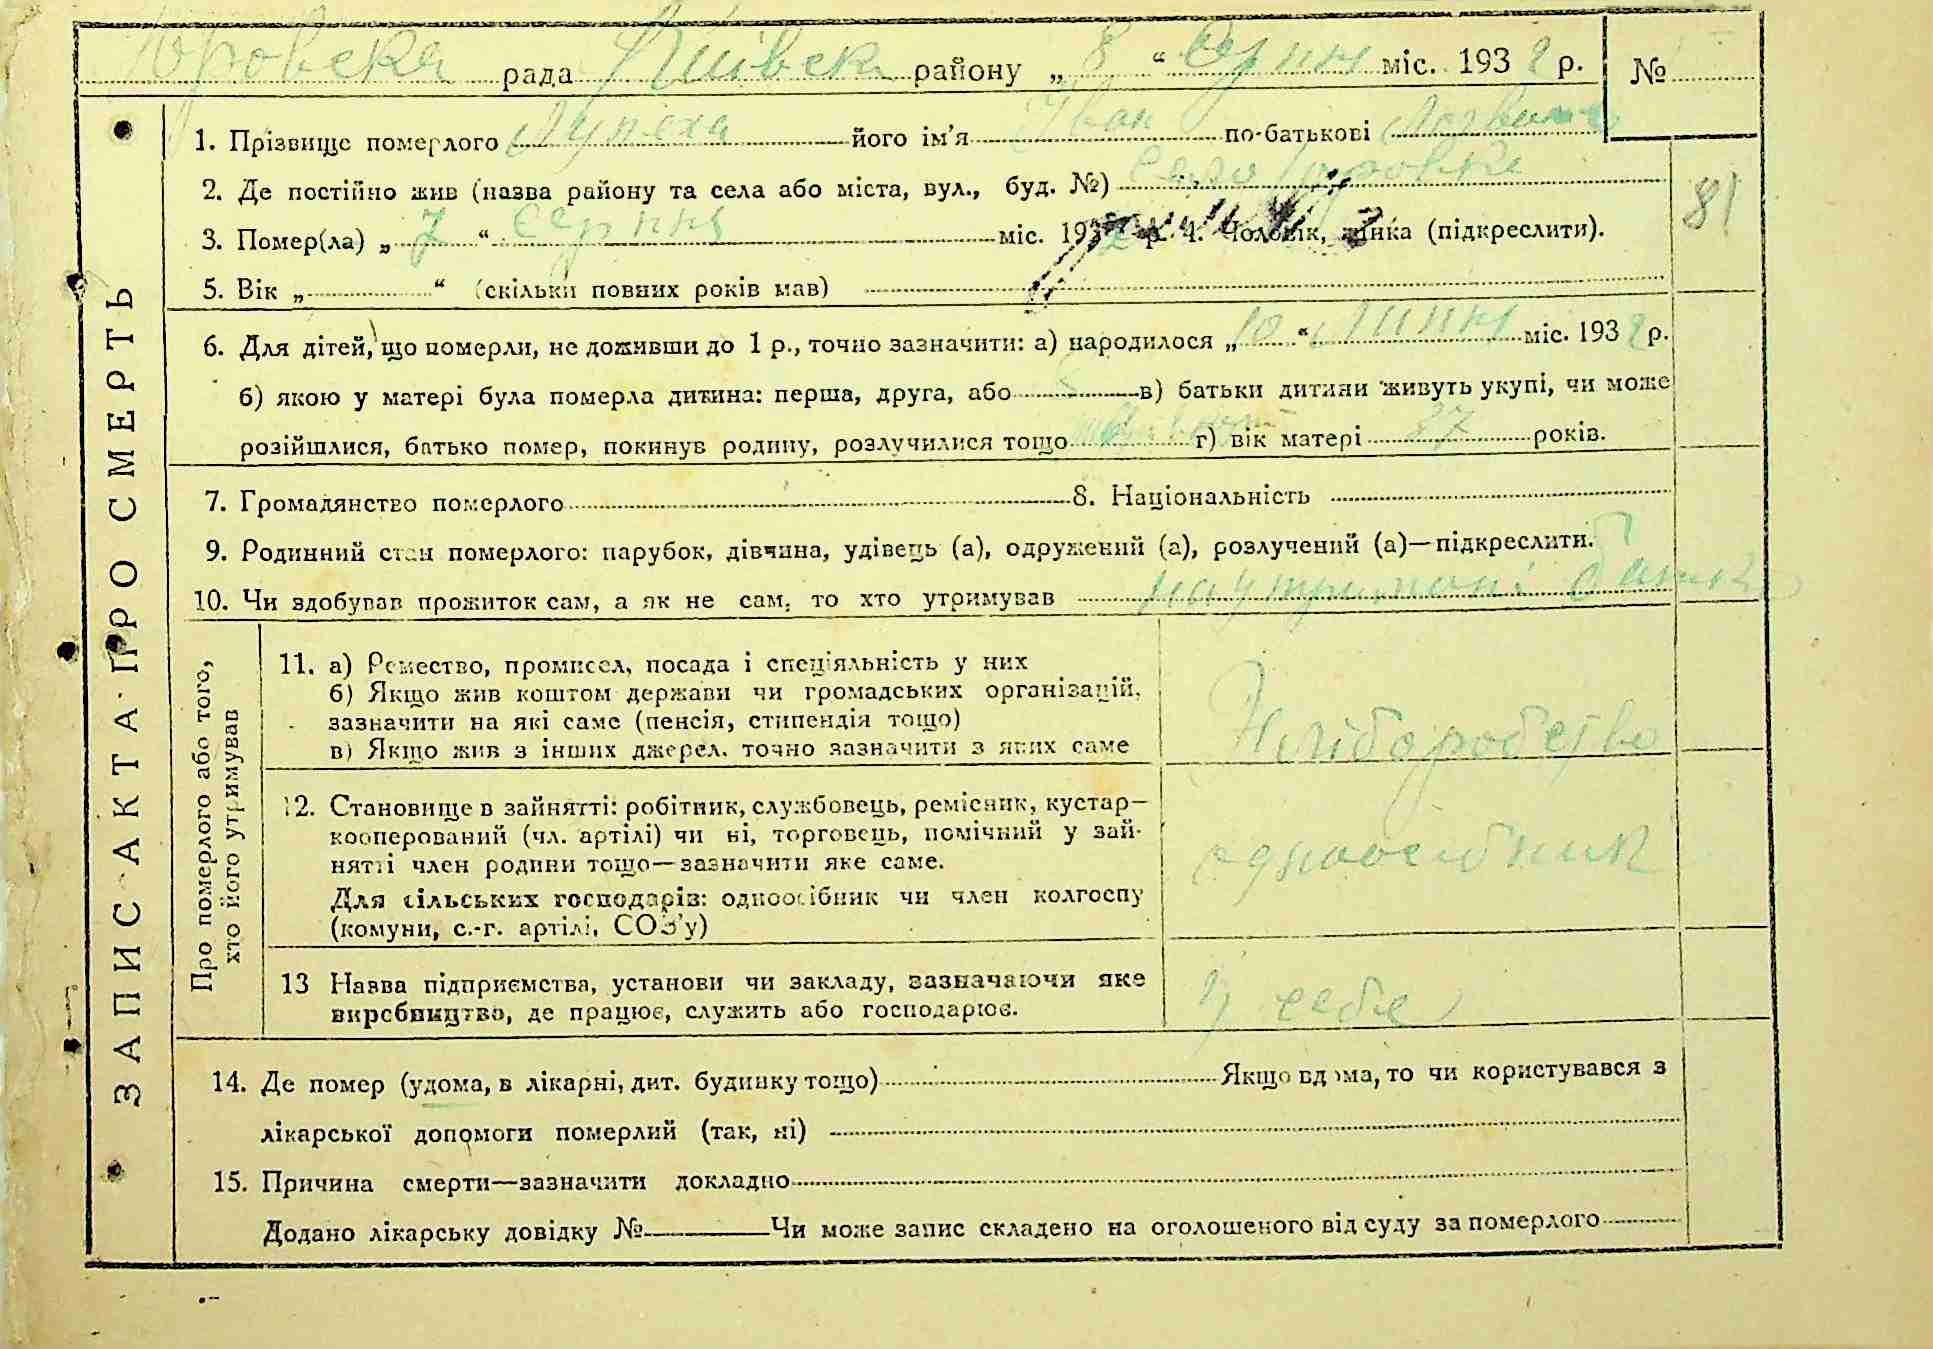 рада Київск району „ 8 “ Серпня міс. 1932 р. №
1. Прізвище померлого Лупеха його ім'я Іван по-батькові
2. Де постійно жив (назва району та села або міста, вул., буд. №) село Юровка
3. Помер(ла) „ 7 “ серпня міс. 1932 р. 4. Чоловік, жінка (підкреслити).
81
5. Вік „ “ (скільки повних років мав)
6. Для дітей, що померли, не доживши до 1 р., точно зазначити: а) народилося „ 10 “ липня міс. 1932 р.
б) якою у матері була померла дитина: перша, друга, або в) батьки дитини живуть укупі, чи може
розійшлися, батько помер, покинув родину, розлучилися тощо г) вік матері 37 років.
7. Громадянство померлого 8. Національність
9. Родинний стан померлого: парубок, дівчина, удівець (а), одружений (а), розлучений (а)—підкреслити.
10. Чи здобував прожиток сам, а як не сам, то хто утримував на утримані батька
ЗАПИС АКТА ПРО СМЕРТЬ
Про померлого або того,
хто його утримував
11. а) Ремество, промисел, посада і спеціяльність у них
б) Якщо жив коштом держави чи громадських організацій,
зазначити на які саме (пенсія, стипендія тощо)
в) Якщо жив з інших джерел, точно зазначити з яких саме
Хліборобство
12. Становище в зайнятті: робітник, службовець, ремісник, кустар—
кооперований (чл. артілі) чи ні, торговець, помічний у зай-
нятті член родини тощо—зазначити яке саме.
Для сільських господарів: одноосібник чи член колгоспу
(комуни, с.-г. артілі, СОЗ'у)
одноосібник
13 Назва підприємства, установи чи закладу, зазначаючи яке
виробництво, де працює, служить або господарює.
У себе
14. Де помер (удома, в лікарні, дит. будинку тощо) Якщо вдома, то чи користувався з
лікарської допомоги померлий (так, ні)
15. Причина смерти—зазначити докладно
Додано лікарську довідку № Чи може запис складено на оголошеного від суду за померлого